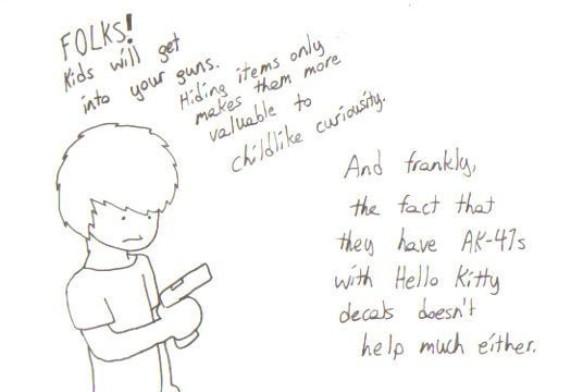 FOLKS!
Kids will get
into your guns.
Hiding items only
makes them more
valuable to
childlike curiousity.
And frankly,
the fact that
they have AK-47s
with Hello Kitty
decals doesn't
help much either.